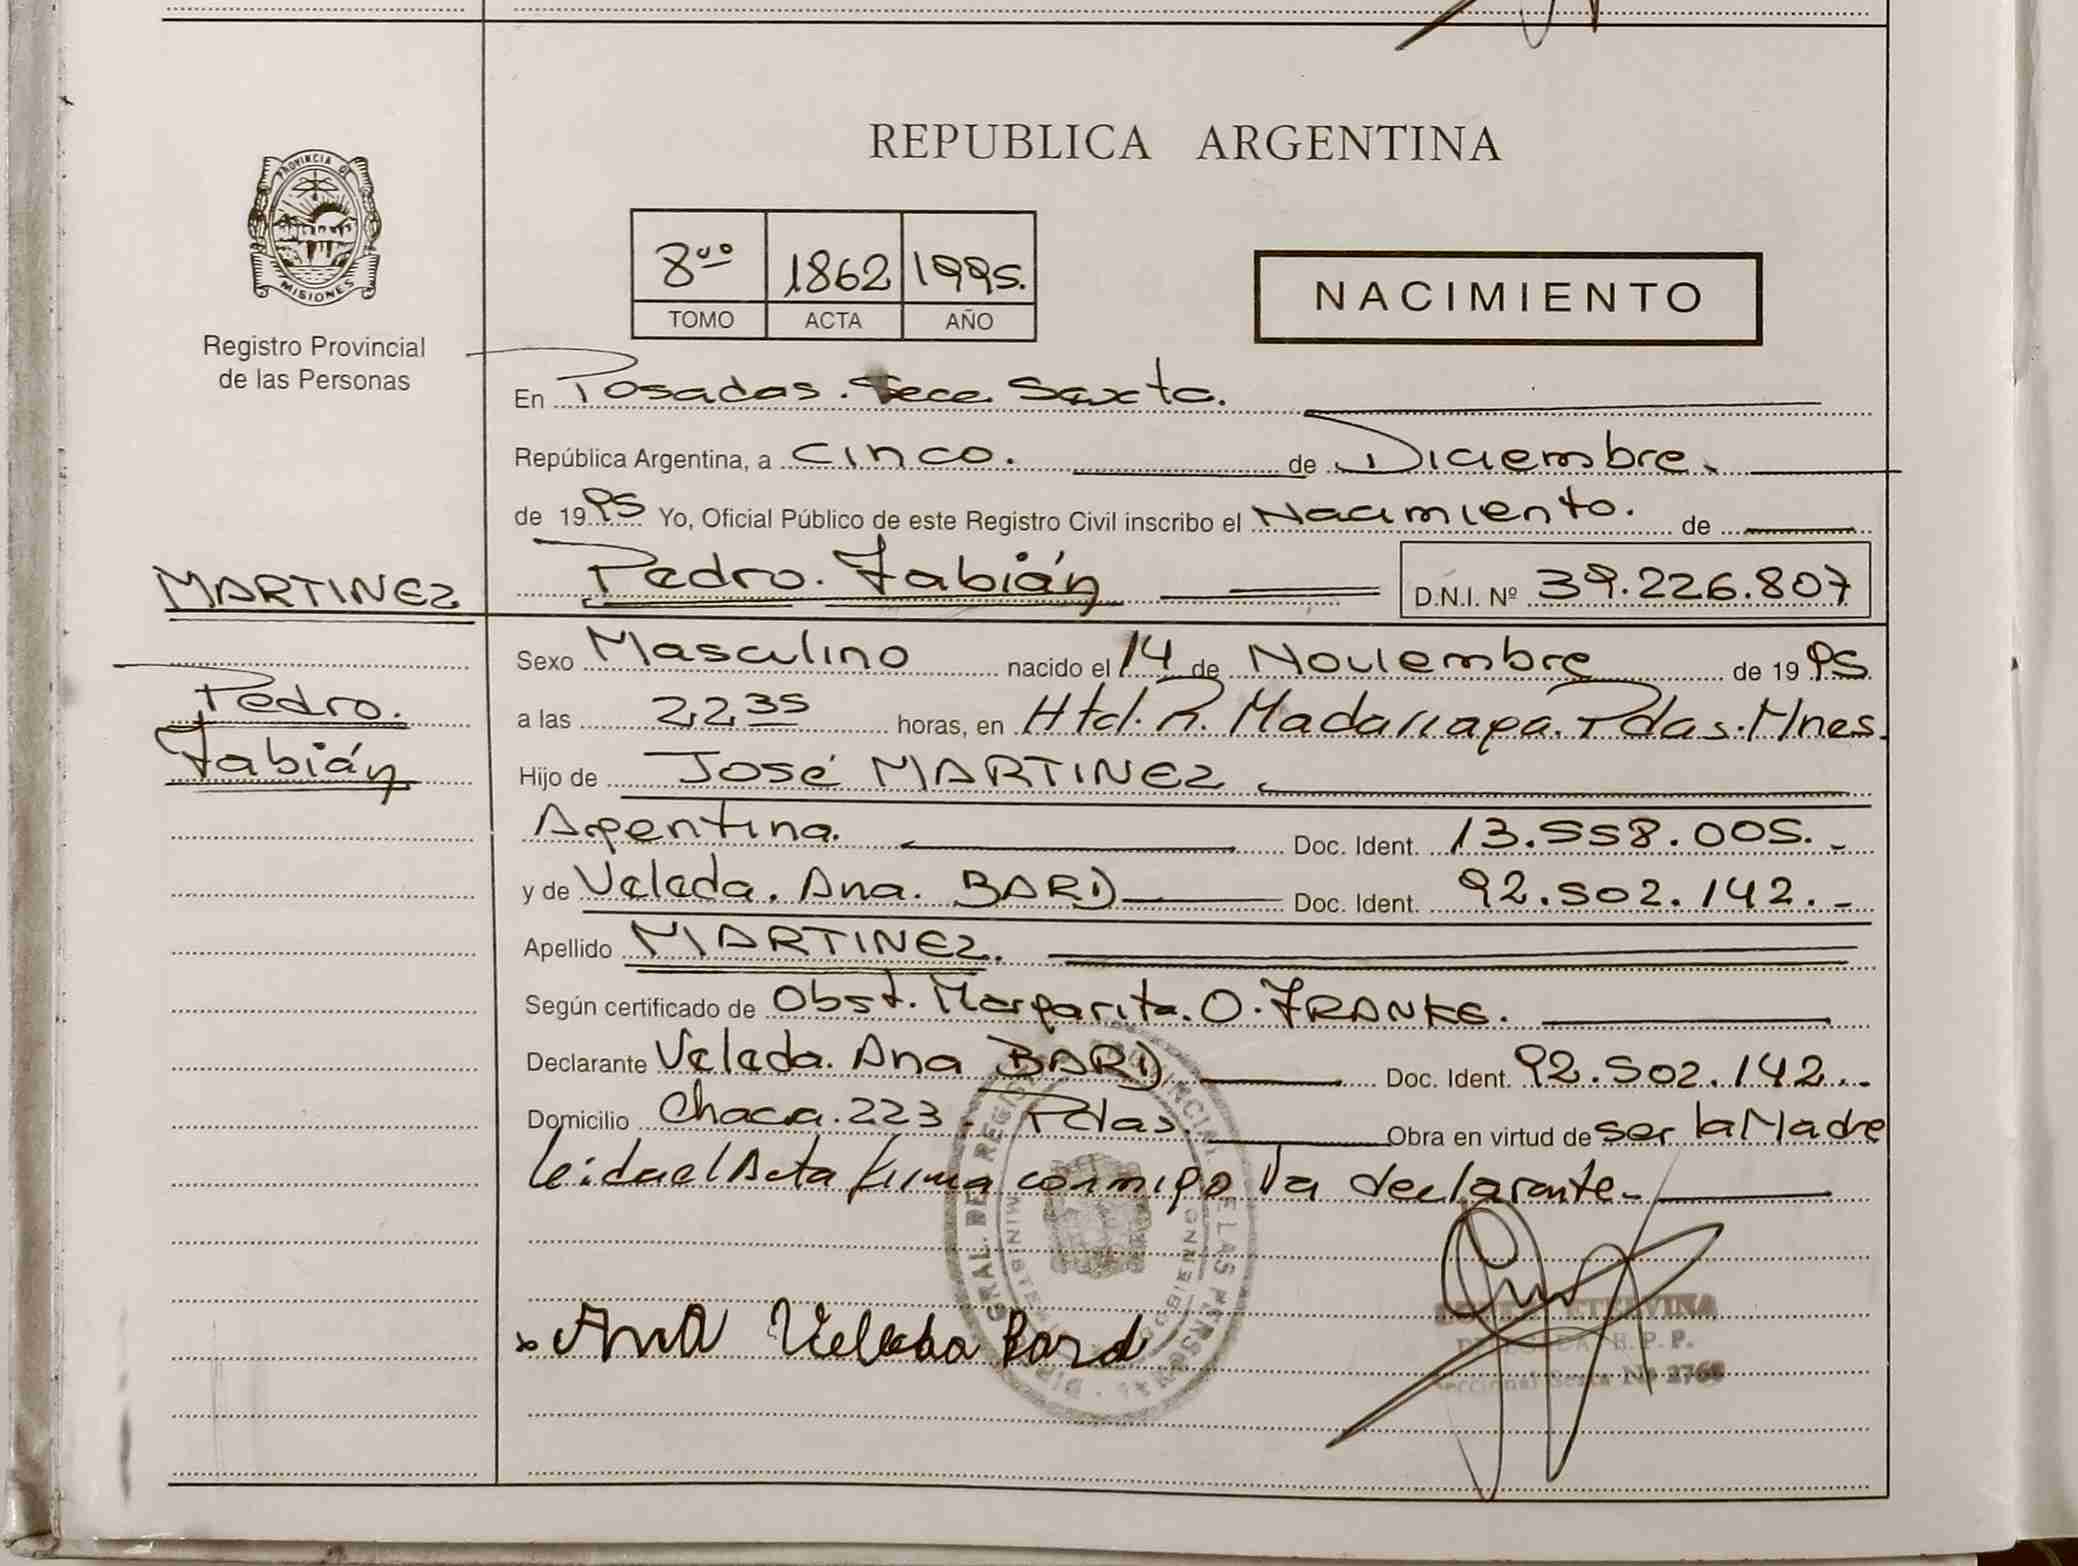 PROVINCIA DE
MISIONES
Registro Provincial
de las Personas
REPUBLICA ARGENTINA
8vo 1862 1995.
TOMO ACTA AÑO
NACIMIENTO
En Posadas. Secc Sexta.
República Argentina, a cinco. de Diciembre.
de 1995 Yo, Oficial Público de este Registro Civil inscribo el Nacimiento. de
MARTINEZ
Pedro. Fabián D.N.I. Nº 39.226.807
Pedro.
Fabián
Sexo Masculino nacido el 14 de Noviembre de 1995
a las 22 35 horas, en Htal. R. Madariaga. Pdas. Mnes.
Hijo de José MARTINEZ
Argentina. Doc. Ident. 13.558.005.-
y de Veleda. Ana. BARD Doc. Ident. 92.502.142.-
Apellido MARTINEZ.
Según certificado de Obst. Margarita. O. FRANKE.
Declarante Veleda. Ana BARD Doc. Ident. 92.502.142.-
Domicilio Chacra. 223 - Pdas. Obra en virtud de ser la Madre
leida el Acta firma conmigo la declarante-
Ana Veleda Bard
ETELVINA
H. P. P.
Seccional Sexta Nº 2768